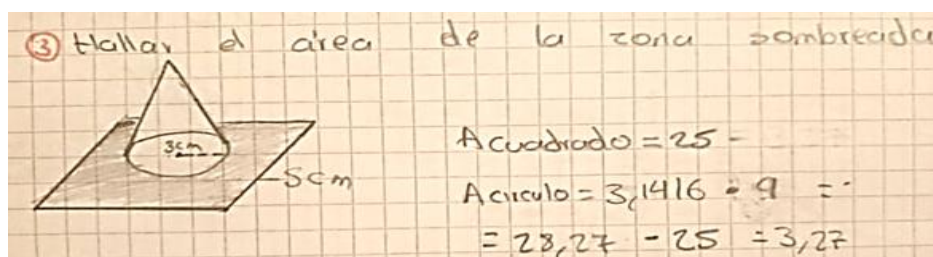 ③ Hallar el área de la zona sombreada
3cm
5cm
A cuadrado = 25 -
A circulo = 3,1416 • 9 =
= 28,27 - 25 = 3,27